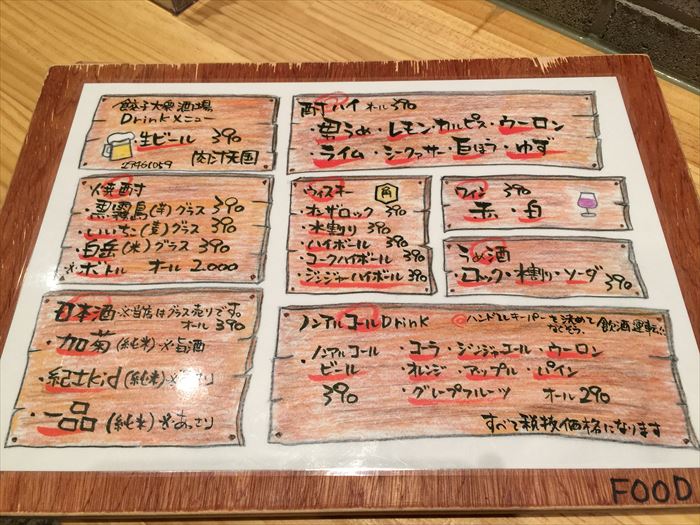 餃子大衆酒場
Drinkメニュー
生ビール 390
27461059 肉汁天国
酎ハイ オール390
・梅うめ・レモン・カルピス・ウーロン
・ライム・シークヮサー・巨ぽう・ゆず
焼酎
・黒霧島(芋)グラス 390
・いいちこ(麦)グラス 390
・白岳(米)グラス 390
※ボトル オール 2,000
ウィスキー 角
・オンザロック 390
・水割り 390
・ハイボール 390
・コークハイボール 390
・ジンジャーハイボール 390
ワイン 390
赤・白
うめ酒
・ロック・水割り・ソーダ 390
日本酒 ※当店はグラス売りです。
オール 390
・加菊(純米)※旨酒
・紀土kid(純米)※
・一品(純米)※あっさり
ノンアルコールDrink
@ハンドルキーパーを決めて
なくそう。飲酒運転!!
・ノンアルコール
ビール
390
・コーラ・ジンジャエール・ウーロン
・オレンジ・アップル・パイン
・グレープフルーツ オール290
すべて税抜価格になります
FOOD